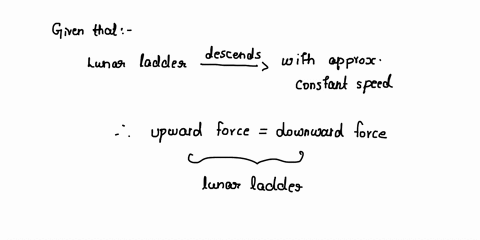 Given that:-
Lunar ladder descends with approx.
constant speed
∴ upward force = downward force
lunar ladder